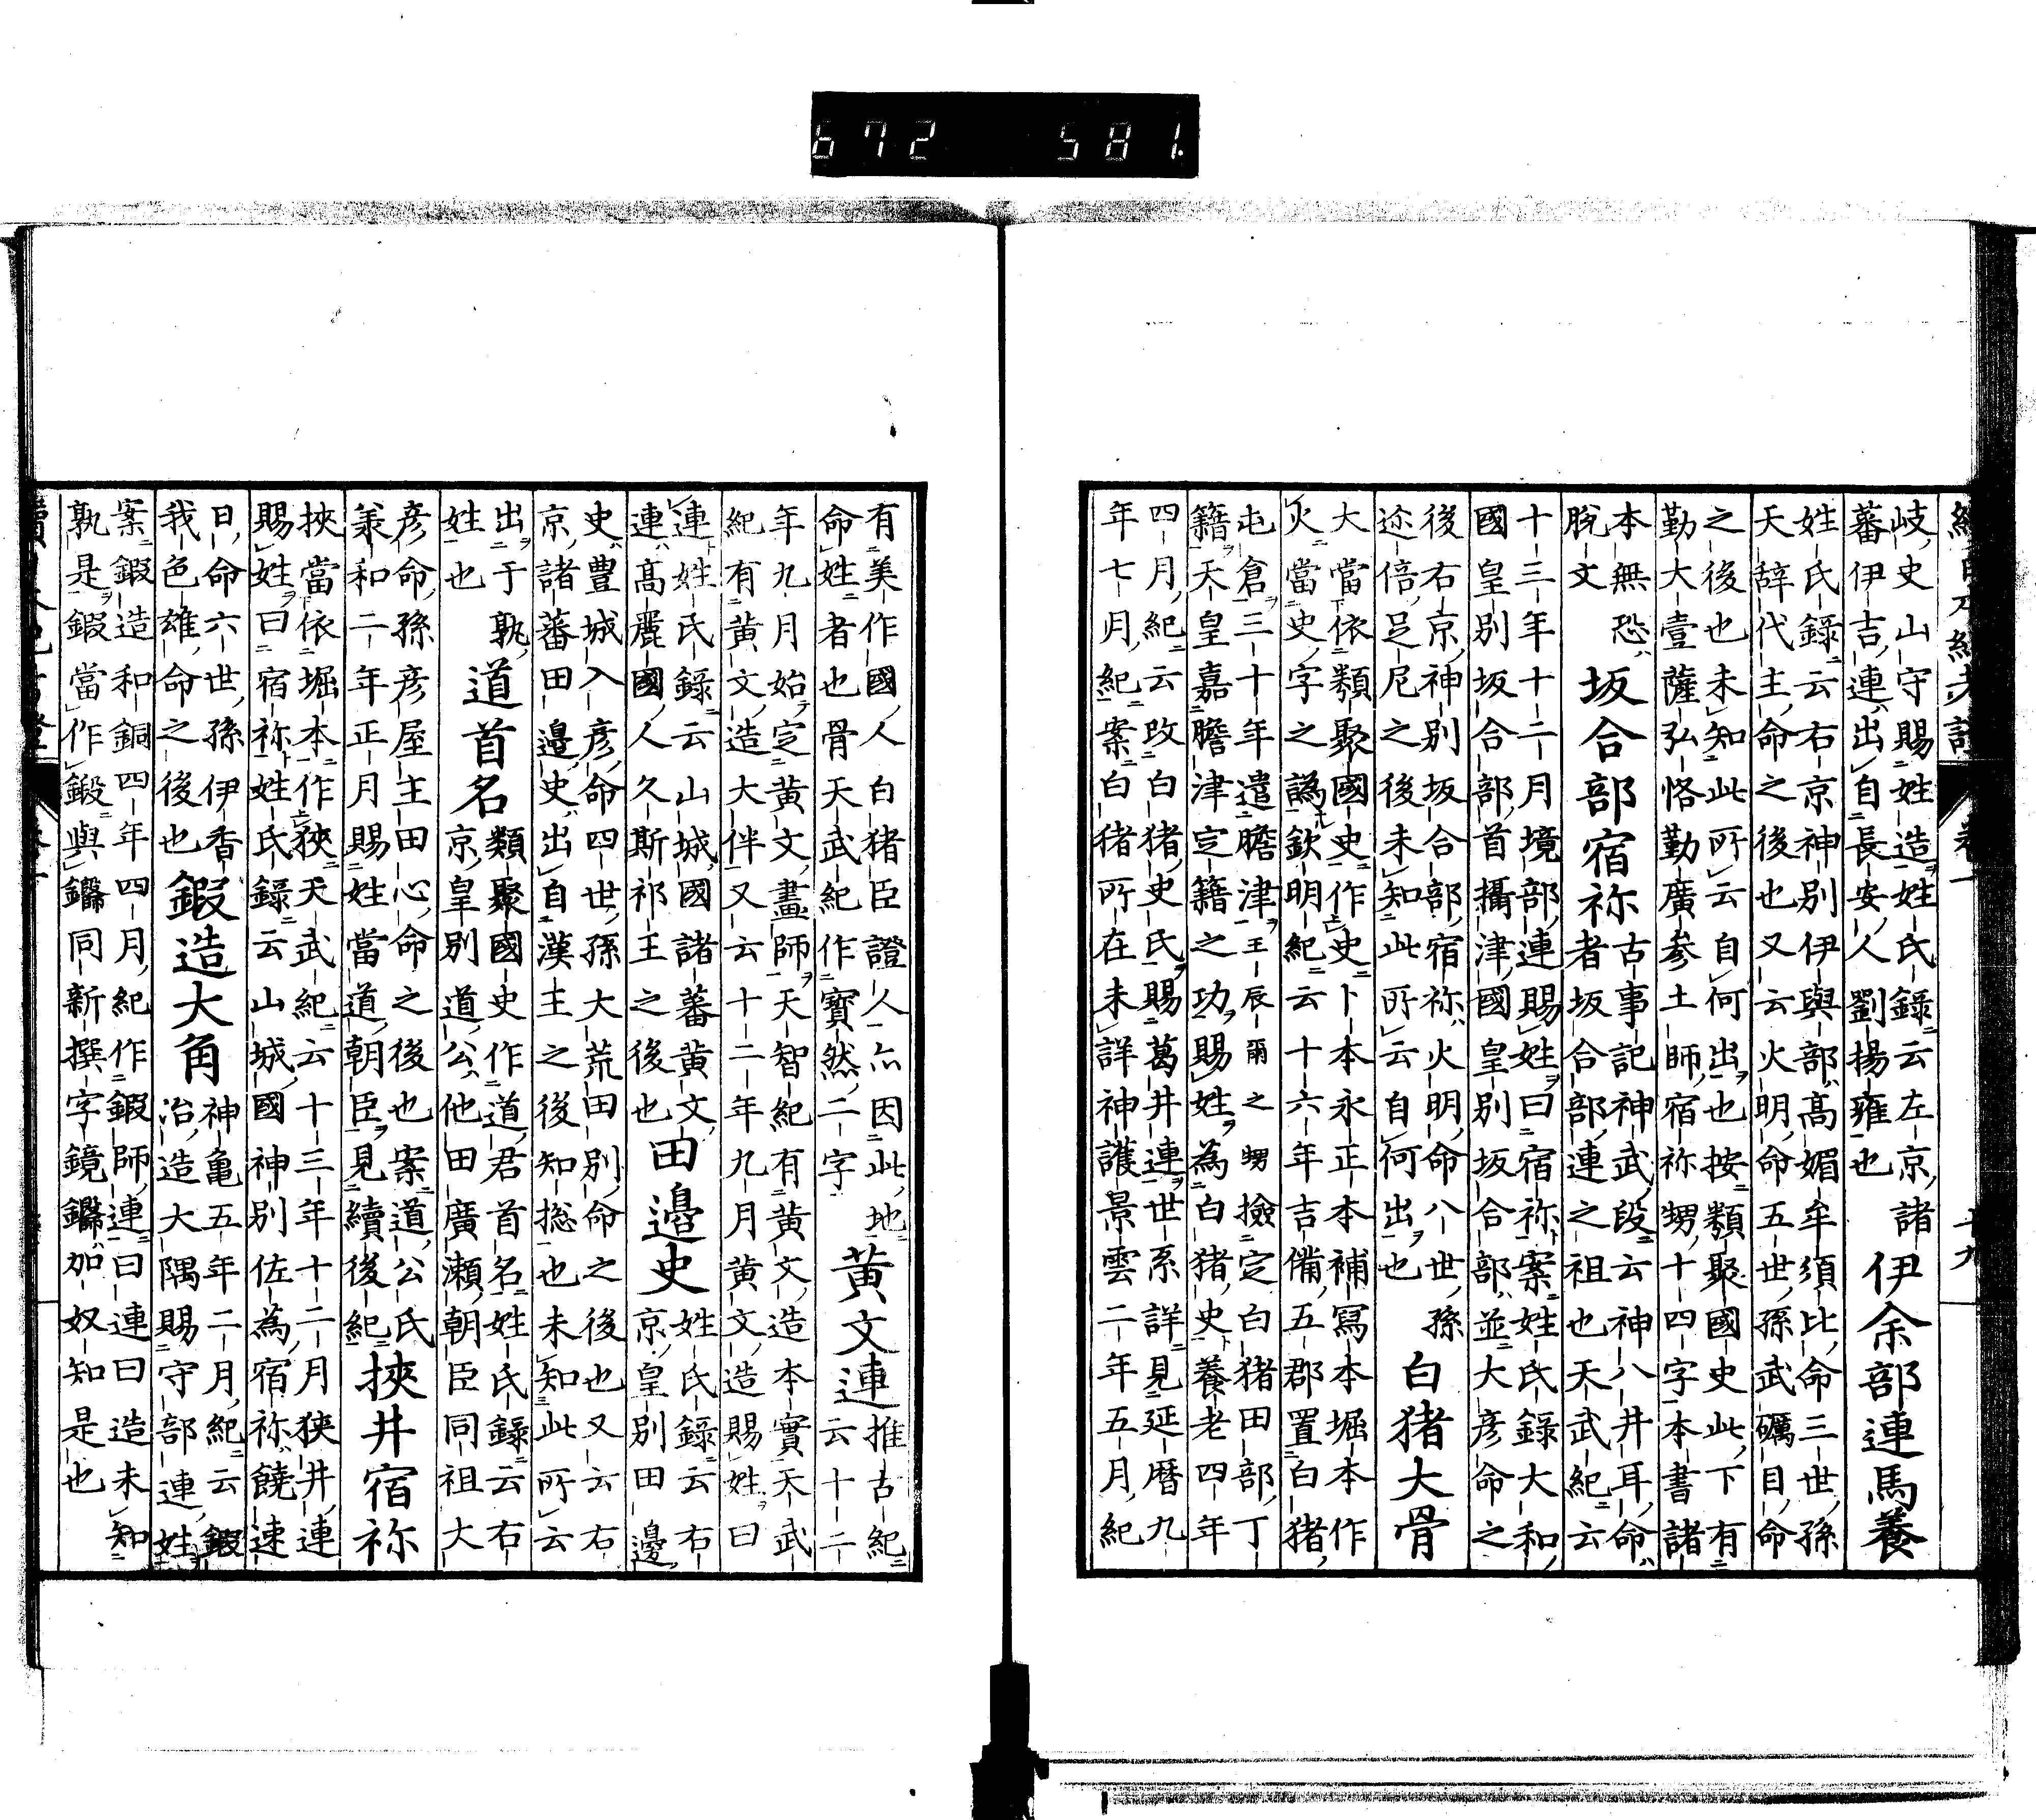 續日本紀考證 卷一 十九
岐史山守賜姓造姓氏録云左京諸
蕃伊吉連出自長安人劉楊雍也
伊余部連馬養
姓氏録云右京神別伊與部高媚牟須比命三世孫
天辞代主命之後也又云火明命五世孫武礪目命
之後也未知此所云自何出也按類聚國史此下有
勤大壹薩弘恪勤廣参土師宿祢甥十四字本書諸
本無恐
脱文
坂合部宿祢
古事記神武段云神八井耳命
者坂合部連之祖也天武紀云
十三年十二月境部連賜姓曰宿祢案姓氏録大和
國皇別坂合部首攝津國皇別坂合部並大彦命之
後右京神別坂合部宿祢火明命八世孫
迩倍足尼之後未知此所云自何出也
白猪大骨
大當依類聚國史作史卜本永正本補寫本堀本作
火當史字之譌欽明紀云十六年吉備五郡置白猪
屯倉三十年遣膽津王辰爾之甥撿定白猪田部丁
籍天皇嘉膽津定籍之功賜姓為白猪史養老四年
四月紀云改白猪史氏賜葛井連世系詳見延暦九
年七月紀案白猪所在未詳神護景雲二年五月紀
有美作國人白猪臣證人亦因此地
命姓者也骨天武紀作寶然二字
黄文連
推古紀
云十二
年九月始定黄文畫師天智紀有黄文造本實天武
紀有黄文造大伴又云十二年九月黄文造賜姓曰
連姓氏録云山城國諸蕃黄文
連高麗國人久斯祁王之後也
田邉史
姓氏録云右
京皇別田邊
史豊城入彦命四世孫大荒田別命之後也又云右
京諸蕃田邉史出自漢主之後知揔也未知此所云
出于孰
姓也
道首名
類聚國史作道君首名姓氏録云右
京皇別道公他田廣瀬朝臣同祖大
彦命孫彦屋主田心命之後也案道公氏
羕和二年正月賜姓當道朝臣見續後紀
挾井宿祢
挾當依堀本作狹天武紀云十三年十二月狹井連
賜姓曰宿祢姓氏録云山城國神別佐為宿祢饒速
日命六世孫伊香
我色雄命之後也
鍜造大角
神亀五年二月紀云鍜
冶造大隅賜守部連姓
案鍜造和銅四年四月紀作鍜師連曰連曰造未知
孰是鍜當作鍛與鑐同新撰字鏡鑐加奴知是也